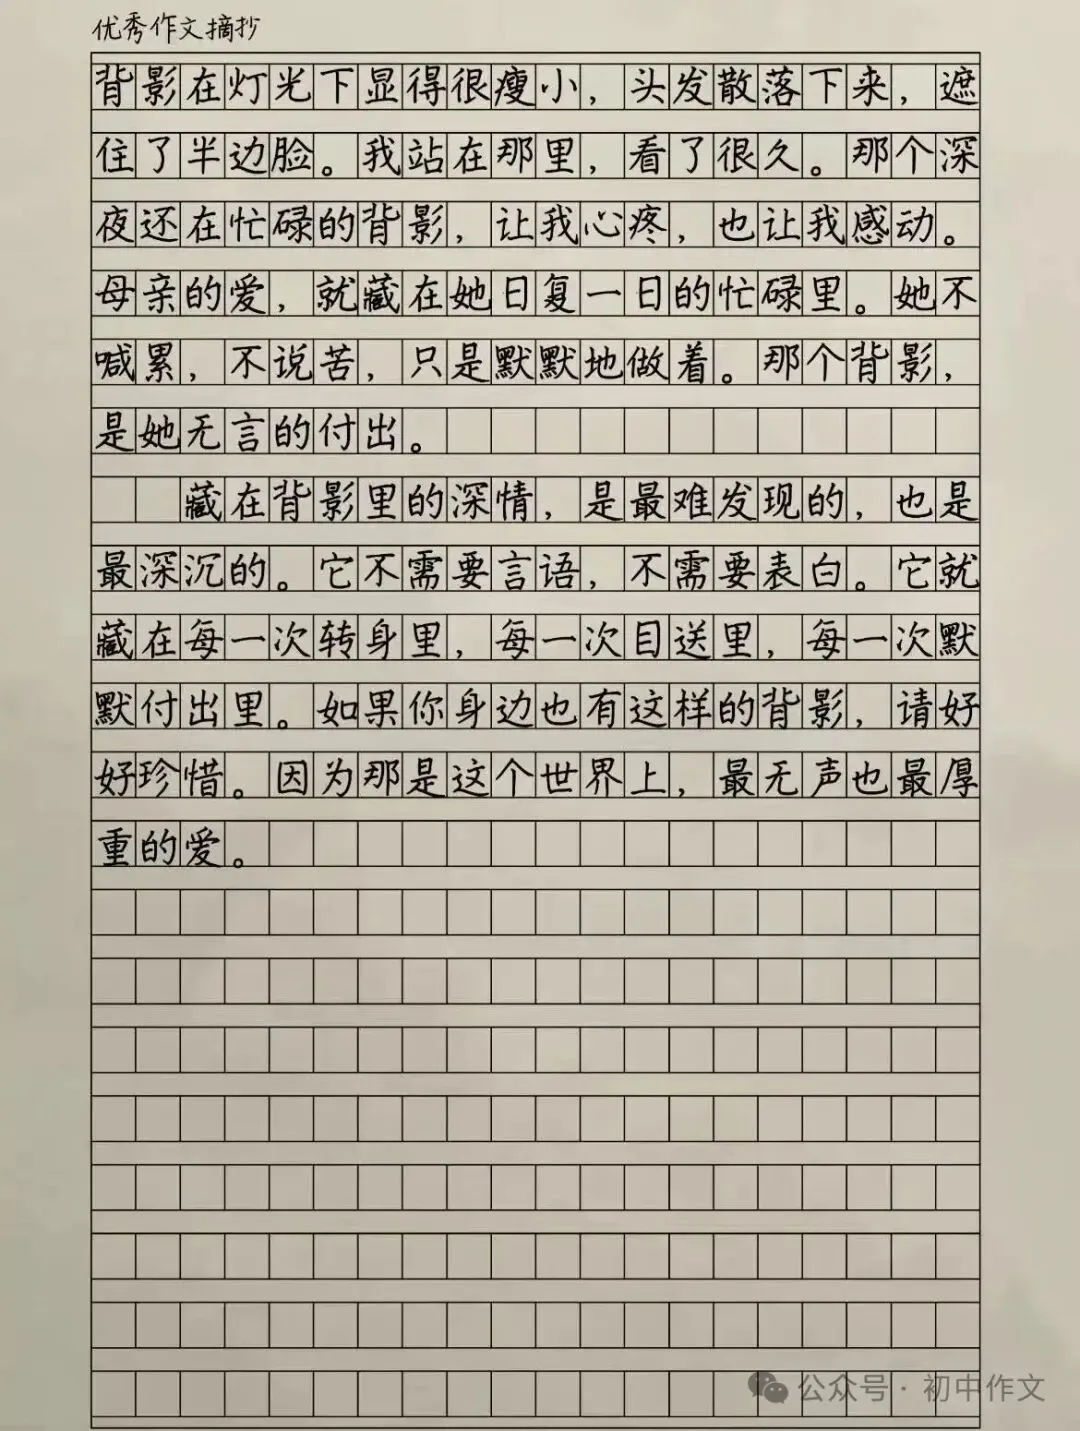 优秀作文摘抄
背影在灯光下显得很瘦小，头发散落下来，遮
住了半边脸。我站在那里，看了很久。那个深
夜还在忙碌的背影，让我心疼，也让我感动。
母亲的爱，就藏在她日复一日的忙碌里。她不
喊累，不说苦，只是默默地做着。那个背影，
是她无言的付出。
藏在背影里的深情，是最难发现的，也是
最深沉的。它不需要言语，不需要表白。它就
藏在每一次转身里，每一次目送里，每一次默
默付出里。如果你身边也有这样的背影，请好
好珍惜。因为那是这个世界上，最无声也最厚
重的爱。
公众号·初中作文